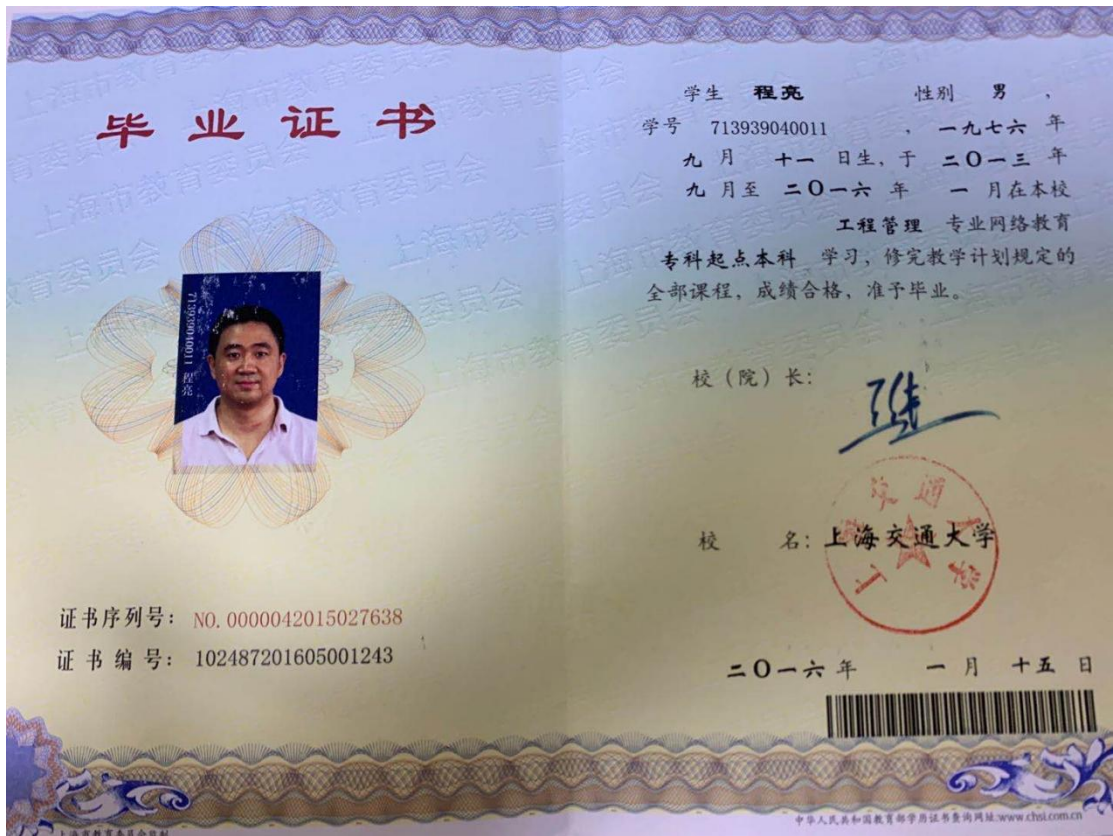 毕业证书
713939040011 程亮
证书序列号: NO. 0000042015027638
证书编号: 102487201605001243
上海市教育委员会监制
学生 程亮 性别 男 ,
学号 713939040011 , 一九七六 年
九 月 十一 日生, 于 二〇一三 年
九 月至 二〇一六 年 一 月在本校
工程管理 专业网络教育
专科起点本科 学习, 修完教学计划规定的
全部课程, 成绩合格, 准予毕业。
校(院)长:
校 名: 上海交通大学
上海交通大学
二〇一六 年 一 月 十五 日
中华人民共和国教育部学历证书查询网址:www.chsi.com.cn
上海市教育委员会